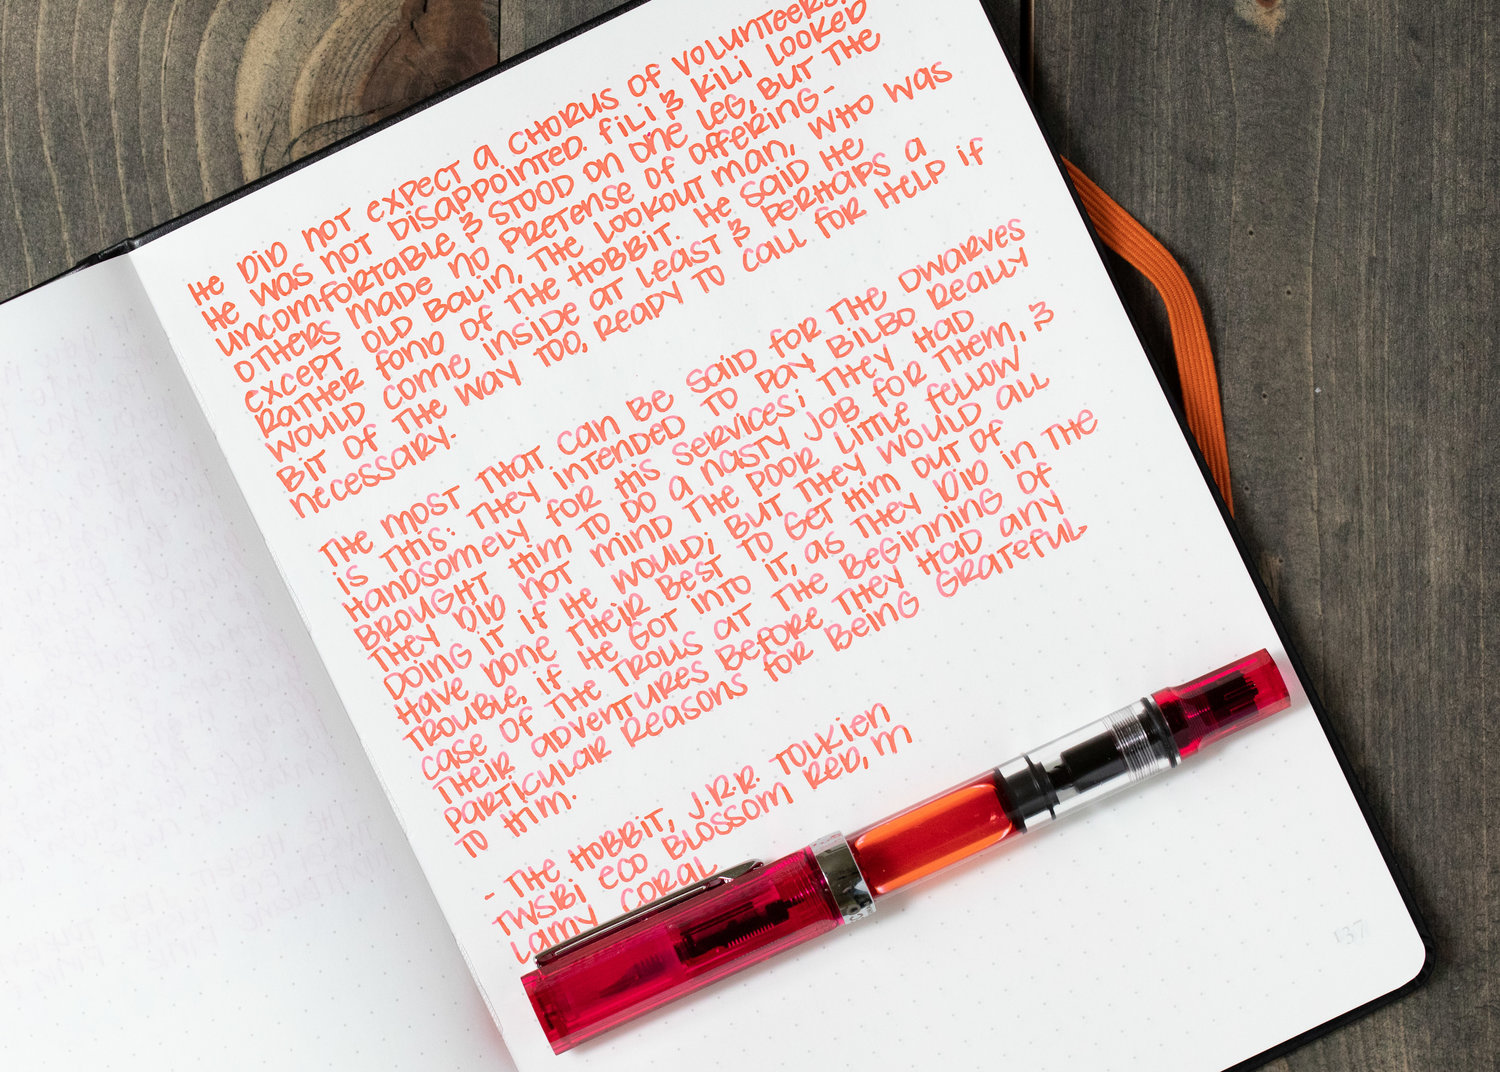 He did not expect a chorus of volunteers,
He was not disappointed. Fili & Kili looked
uncomfortable & stood on one leg, but the
others made no pretense of offering-
except old Balin, the lookout man, who was
rather fond of the hobbit. He said he
would come inside at least & perhaps a
bit of the way too, ready to call for help if
necessary.
The most that can be said for the dwarves
is this: they intended to pay Bilbo really
handsomely for his services; they had
brought him to do a nasty job for them, &
they did not mind the poor little fellow
doing it if he would; but they would all
have done their best to get him out of
trouble, if he got into it, as they did in the
case of the trolls at the beginning of
their adventures before they had any
particular reasons for being grateful
to him.
- The Hobbit, J.R.R. Tolkien
TWSBI ECO Blossom Red, M
Lamy Coral
137